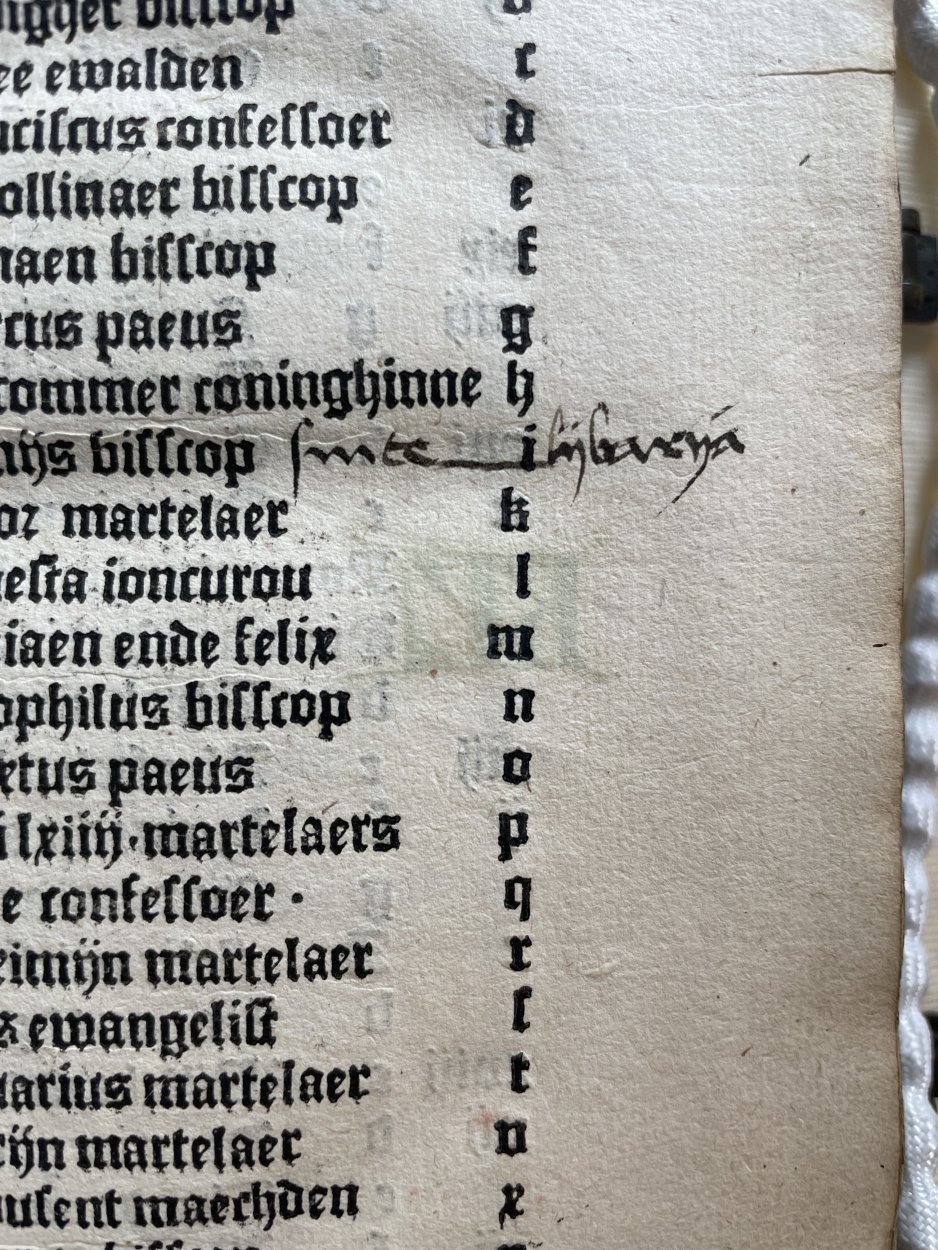 ngher bisscop
ee ewalden c
nciscus confessoer d
ollinaer bisscop e
naen bisscop f
rcus paeus g
commer coninghinne h
nijs bisscop sinte i lijbarija
or martelaer k
nesta ioncurou l
iaen ende felix m
ophilus bisscop n
etus paeus o
i lxiiij·martelaers p
e confessoer · q
eimijn martelaer r
s ewangelist s
uarius martelaer t
rijn martelaer v
usent maechden x